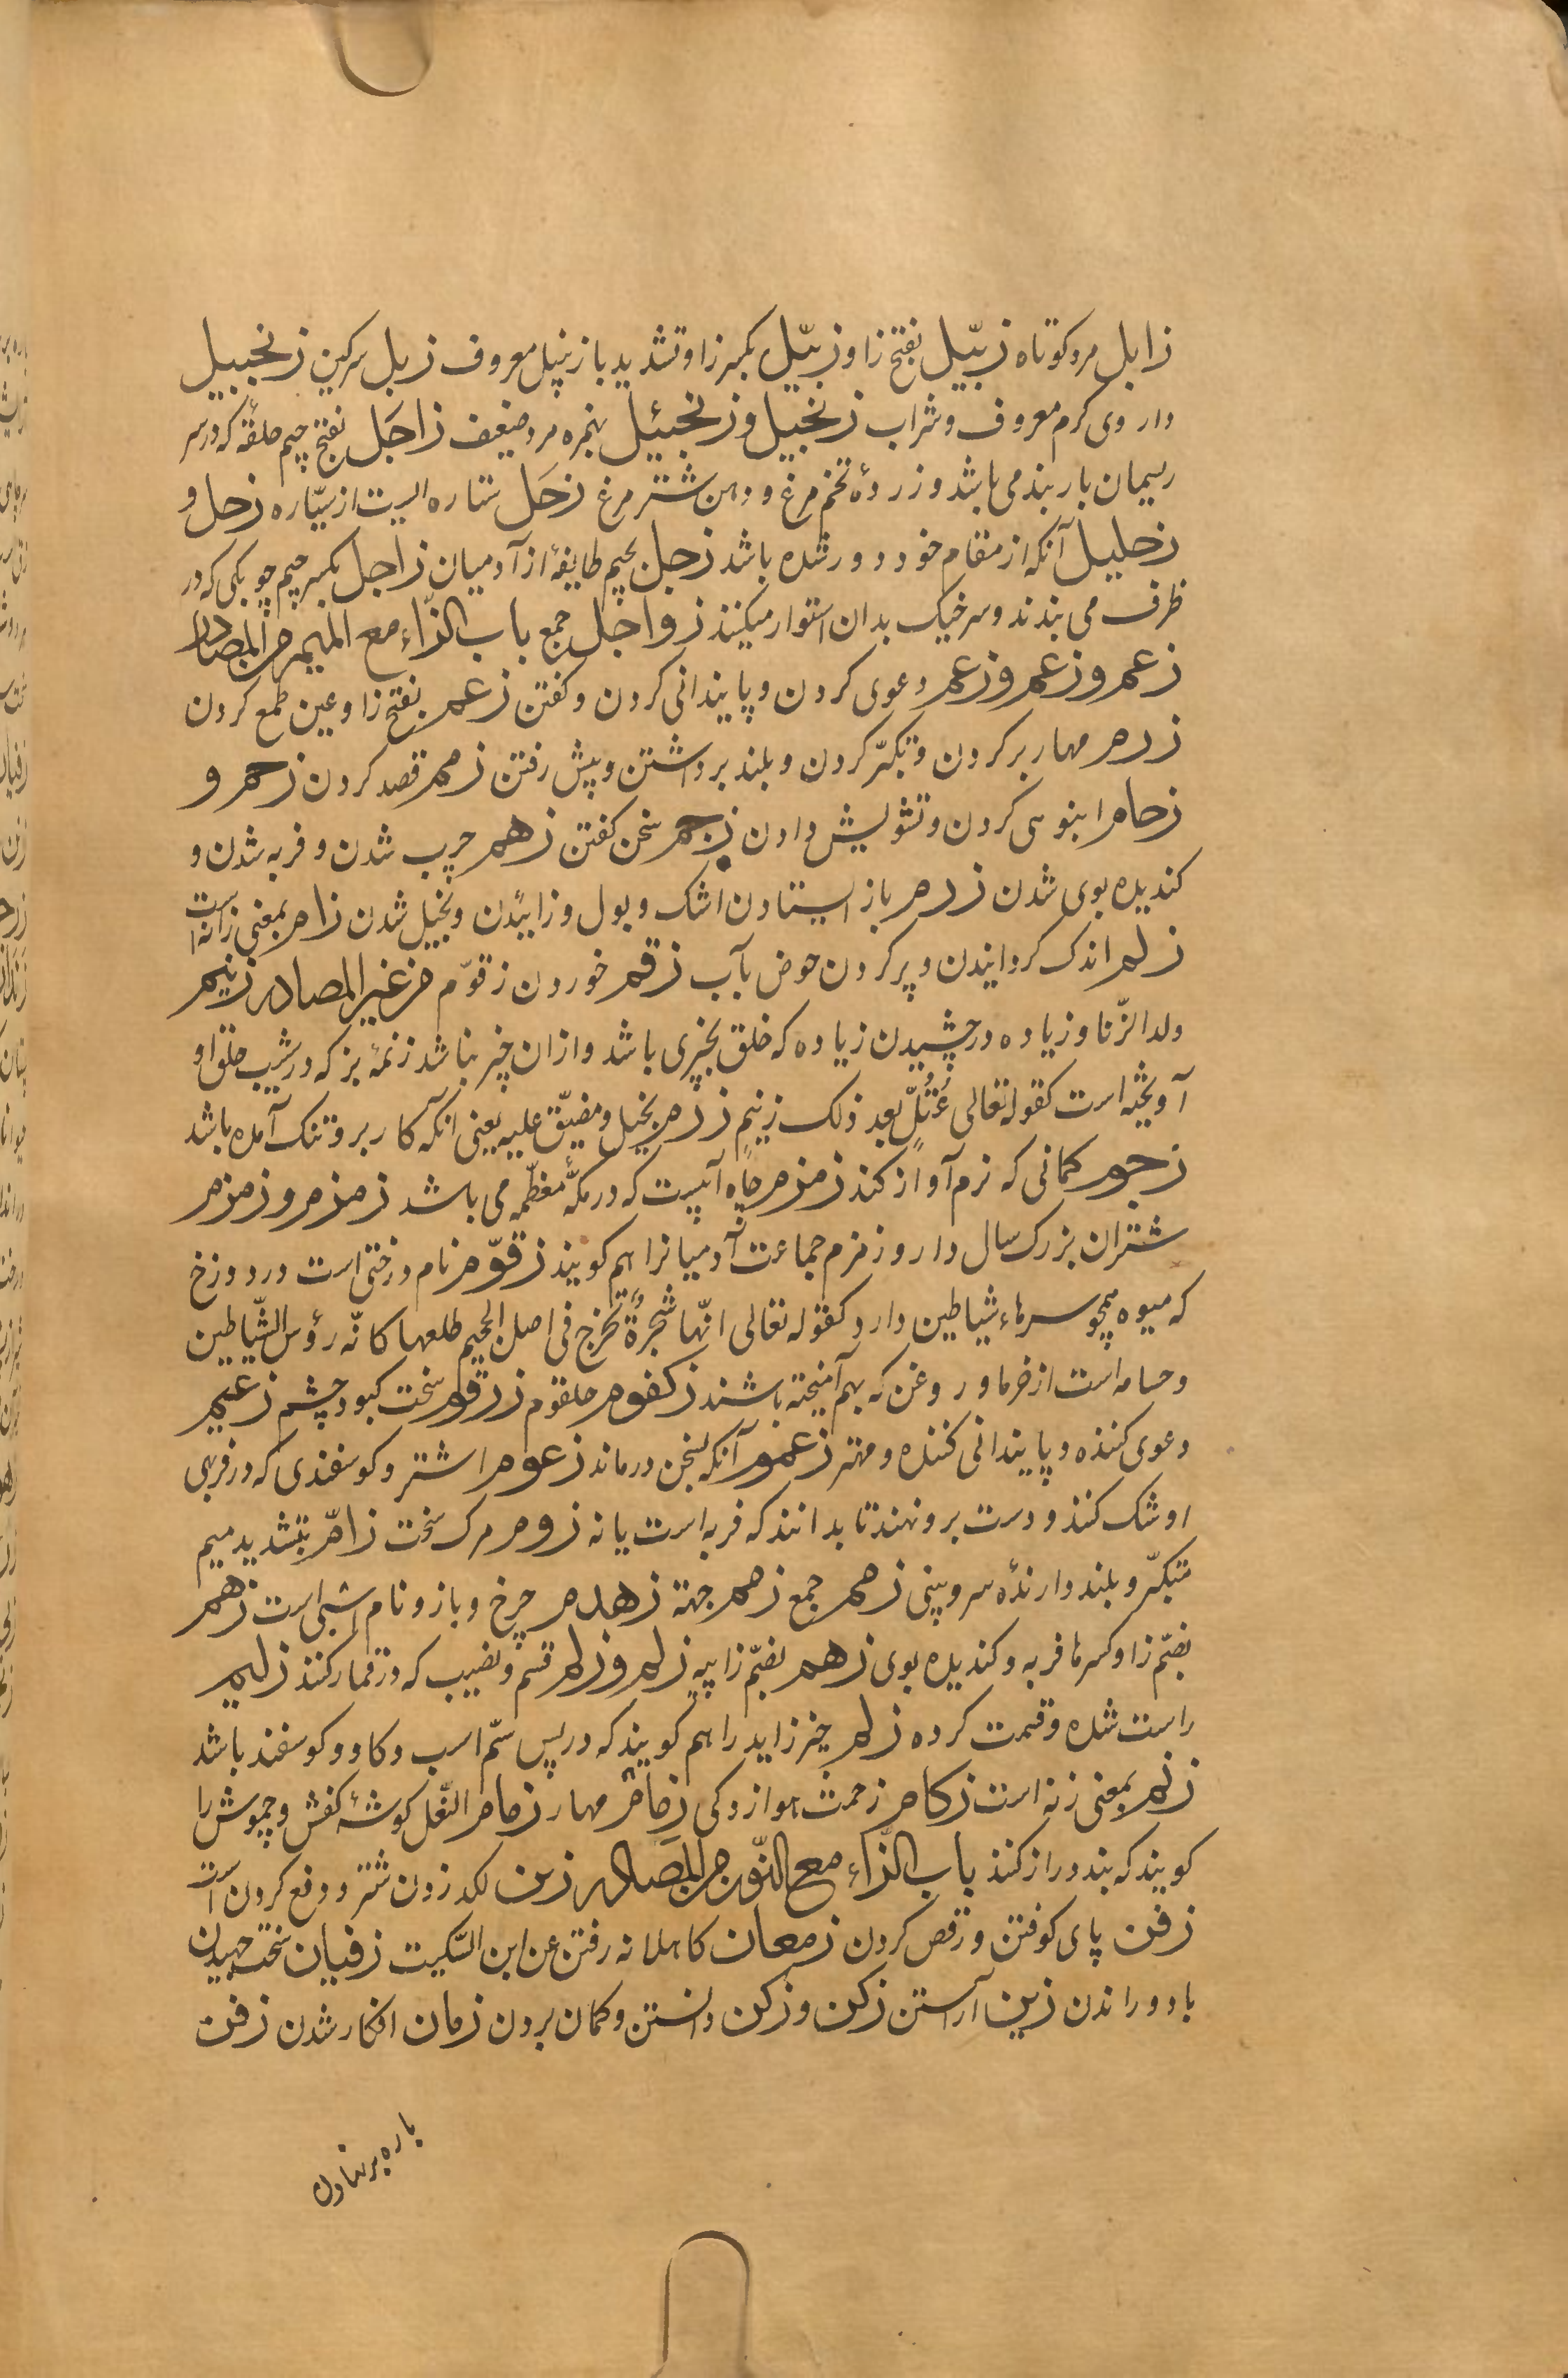 زابل مرد کوتاه زبّیل بفتح زا و زبّیل بکسر زا و تشدید با زنبیل معروف زبل سرکین زنجبیل
داروی کرم معروف و شراب زنجبیل و زنجبئیل بهمزه مرد ضعیف زاجَل بفتح جیم حلقهٔ که در سر
ریسمان باربند می باشد و زردهٔ تخم مرغ و دهن شتر مرغ زحَل ستاره ایست از سیّاره زحل و
زحلیل آنکه از مقام خود دور شده باشد زجل بجیم طایفهٔ از آدمیان زاجل بکسر جیم چوبکی که در
ظرف می بندند و سر خیک بدان استوار میکنند زواجل جمع باب الزّاء مع المیم من المصادر
زعم و زعم و زعم دعوی کردن و پایندانی کردن و کفتن زعم بفتح زا و عین طمع کردن
زم مهار بر کردن و تکبّر کردن و بلند برداشتن و پیش رفتن زمم قصد کردن زحم و
زحام انبوهی کردن و تشویش دادن زجم سخن کفتن زهم چرب شدن و فربه شدن و
کندیده بوی شدن زرم باز ایستادن اشک و بول و زاییدن و بخیل شدن زام بمعنی زانه است
زلم اندک کردانیدن و پر کردن حوض بآب زقم خوردن زقوّم من غیر المصادر زنیم
ولد الزّنا و زیاده در چسپیدن زیاده که خلق بچیزی باشد و ازان چیز نباشد زنمهٔ بز که در شیب حلق او
آویخته است کقوله تعالی عُتُلٍّ بعد ذلک زنیم زرم بخیل و مضیّق علیه یعنی آنکه کار برو تنک آمده باشد
زجوم کمانی که نرم آواز کند زمزم چاه آبیست که در مکّهٔ معظّمه می باشد زمزم و زمزم
شتران بزرک سال دار و زمزم جماعت آدمیانرا هم کویند زقوّم نام درختی است در دوزخ
که میوه همچو سرهاء شیاطین دارد کقوله تعالی انّها شجرةٌ تخرج فی اصل الجحیم طلعها کانّه رؤس الشّیاطین
و حسامه است از خرما و روغن که بهم آمیخته باشند زکفوم حلقوم زرقم سخت کبود چشم زعیم
دعوی کننده و پایندانی کننده و مهتر زعموم آنکه بسخن درماند زعوم اشتر و کوسفندی که در فربهی
او شک کنند و دست برو نهند تا بدانند که فربه است یا نه زوم مرک سخت زامّ بتشدید میم
متکبّر و بلند دارندهٔ سر و بینی زمم جمع زمم جهة زهدم چرغ و باز و نام اسبی است زهم
بضمّ زا و کسر ها فربه و کندیده بوی زهم بضمّ زا پیه زلم و زلم قسم و نصیب که در قمار کنند زلیم
راست شده و قسمت کرده زلم چیز زاید را هم کویند که در پس سمّ اسب و کاو و کوسفند باشد
زنم بمعنی زنه است زکام زحمت هوازدکی زمام مهار زمام النّعل کوشهٔ کفش و چموش را
کویند که بند دراز کند باب الزّاء مع النّون من المصادر زبن لکد زدن شتر و دفع کردن است
زفن پای کوفتن و رقص کردن زمعان کاهلانه رفتن عن ابن السّکیت زفیان سخت جهیدن
باد و راندن زین آراستن زکن و زکن دانستن و کمان بردن زمان افکار شدن زفن
باره بر نهادن